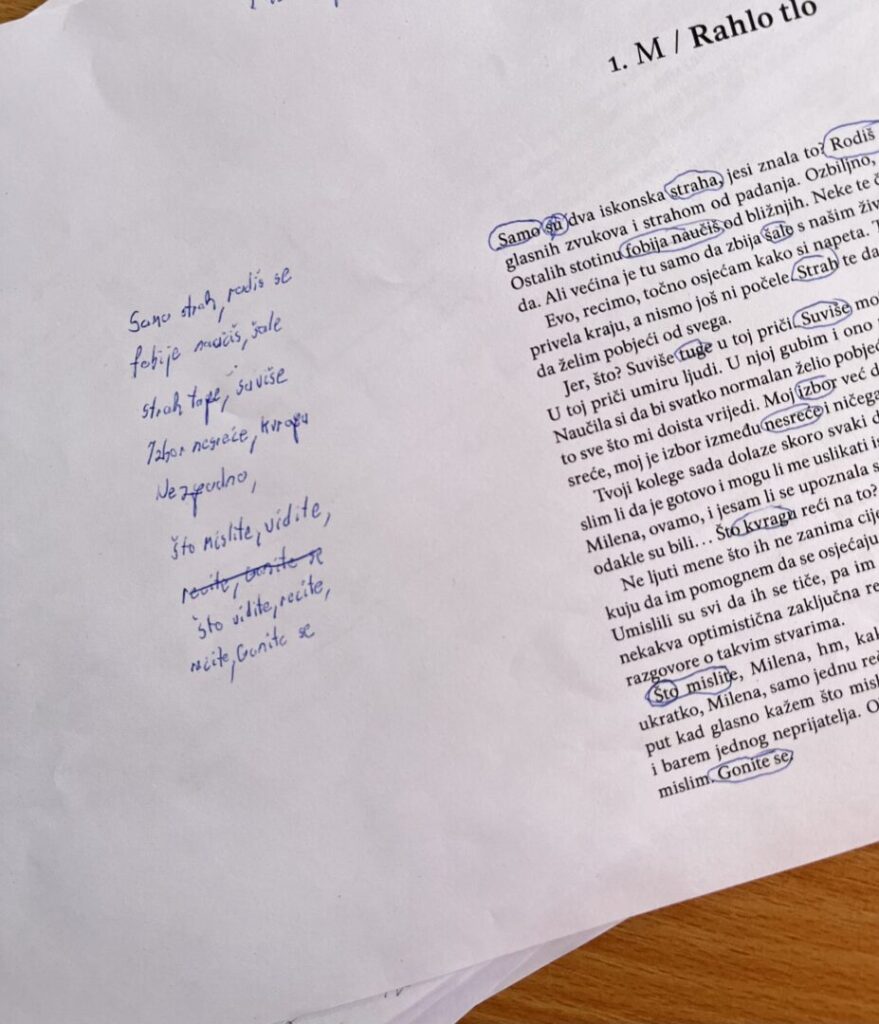 Samo strah, rodiš se
fobije naučiš, šale
strah tope, suviše
Izbor nesreće, kvragu
Nezgodno,
što mislite, vidite,
recite, Gonite se
što vidite, recite,
recite, Gonite se
1. M / Rahlo tlo
Samo su dva iskonska straha, jesi znala to? Rodiš
glasnih zvukova i strahom od padanja. Ozbiljno,
Ostalih stotinu fobija naučiš od bližnjih. Neke te
da. Ali većina je tu samo da zbija šale s našim
Evo, recimo, točno osjećam kako si napeta.
privela kraju, a nismo još ni počele. Strah te da
da želim pobjeći od svega.
Jer, što? Suviše tuge u toj priči. Suviše
U toj priči umiru ljudi. U njoj gubim i ono
Naučila si da bi svatko normalan želio
to sve što mi doista vrijedi. Moj izbor već
sreće, moj je izbor između nesreće i
Tvoji kolege sada dolaze skoro svaki
slim li da je gotovo i mogu li me uslikati
Milena, ovamo, i jesam li se upoznala s
odakle su bili… Što kvragu reći na to?
Ne ljuti mene što ih ne zanima
kuju da im pomognem da se osjećaju
Umislili su svi da ih se tiče, pa im
nekakva optimistična zaključna
razgovore o takvim stvarima.
Što mislite, Milena, hm,
ukratko, Milena, samo jednu
put kad glasno kažem što
i barem jednog neprijatelja.
mislim. Gonite se.